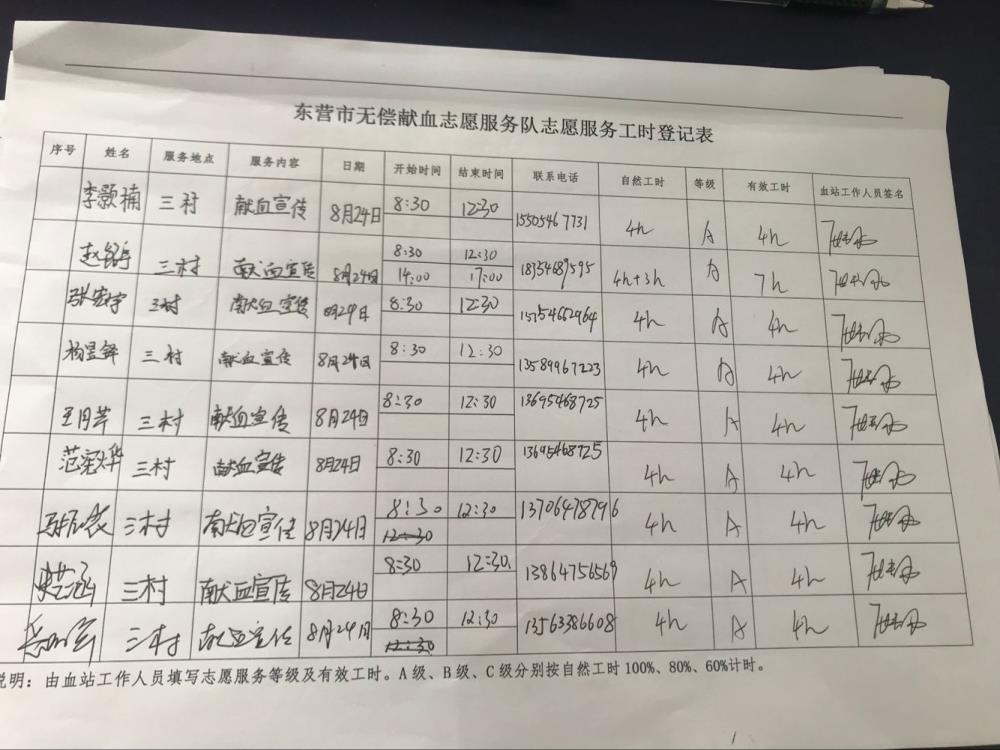 东营市无偿献血志愿服务队志愿服务工时登记表
序号 姓名 服务地点 服务内容 日期 开始时间 结束时间 联系电话 自然工时 等级 有效工时 血站工作人员签名
李颢楠 三村 献血宣传 8月24日 8:30 12:30 15505467731 4h A 4h
三村 献血宣传 8月24日 8:30 12:30 18354689595 4h+3h A 7h
14:00 17:00
张宏宇 三村 献血宣传 8月24日 8:30 12:30 4h A 4h
杨昱铎 三村 献血宣传 8月24日 8:30 12:30 13589967223 4h A 4h
王月芹 三村 献血宣传 8月24日 8:30 12:30 13695468725 4h A 4h
三村 献血宣传 8月24日 8:30 12:30 13695468725 4h A 4h
三村 献血宣传 8月24日 8:30 12:30 13706478796 4h A 4h
12:30
三村 献血宣传 8月24日 8:30 12:30 13864756569 4h A 4h
三村 献血宣传 8月24日 8:30 12:30 13563386608 4h A 4h
12:30
说明：由血站工作人员填写志愿服务等级及有效工时。A级、B级、C级分别按自然工时100%、80%、60%计时。